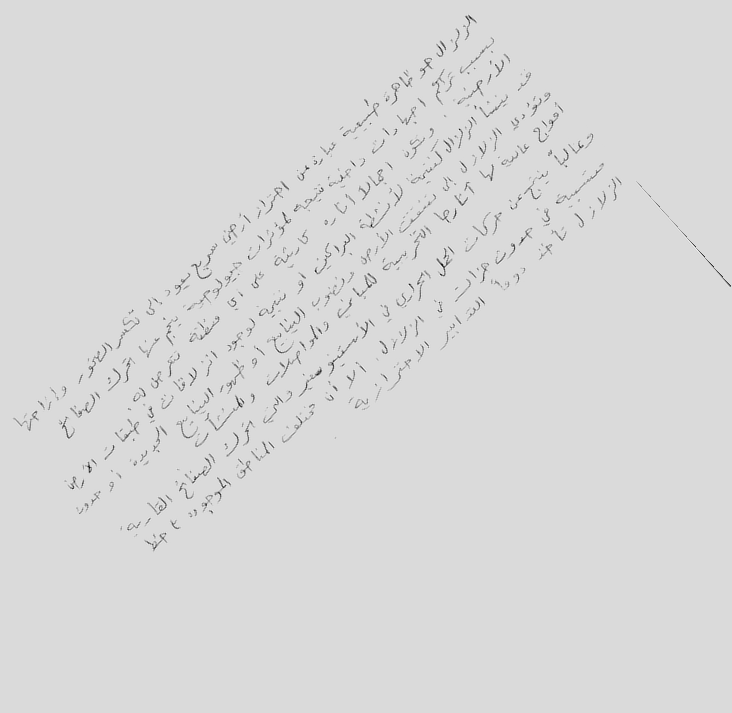 الزلزال هو ظاهرة طبيعية عبارة عن اهتزاز أرضي سريع يعود إلى تكسر الصخور وإزاحتها
بسبب تراكم اجهادات داخلية نتيجة لمؤثرات جيولوجية ينجم عنها تحرك الصفائح
الأرضية. وتكون اجمالا آثاره كارثية على أي منطقة تتعرض له
قد ينشأ الزلزال كنتيجة لأنشطة البراكين أو نتيجة لوجود انزلاقات في طبقات الأرض
وتؤدي الزلازل إلى تشقق الأرض ونضوب الينابيع أو ظهور الينابيع الجديدة أو حدوث
أمواج عالية لها آثارها التخريبية للمباني والمواصلات والمنشآت
وغالباً ينتج عن حركات الحمل الحراري في الأسثينوسفير والتي تحرك الصفائح القارية
متسببة في حدوث هزات في الزلازل، إلا أن مختلف المناطق الموجودة خط
الزلازل تأخذ دوماً التدابير الاحترازية